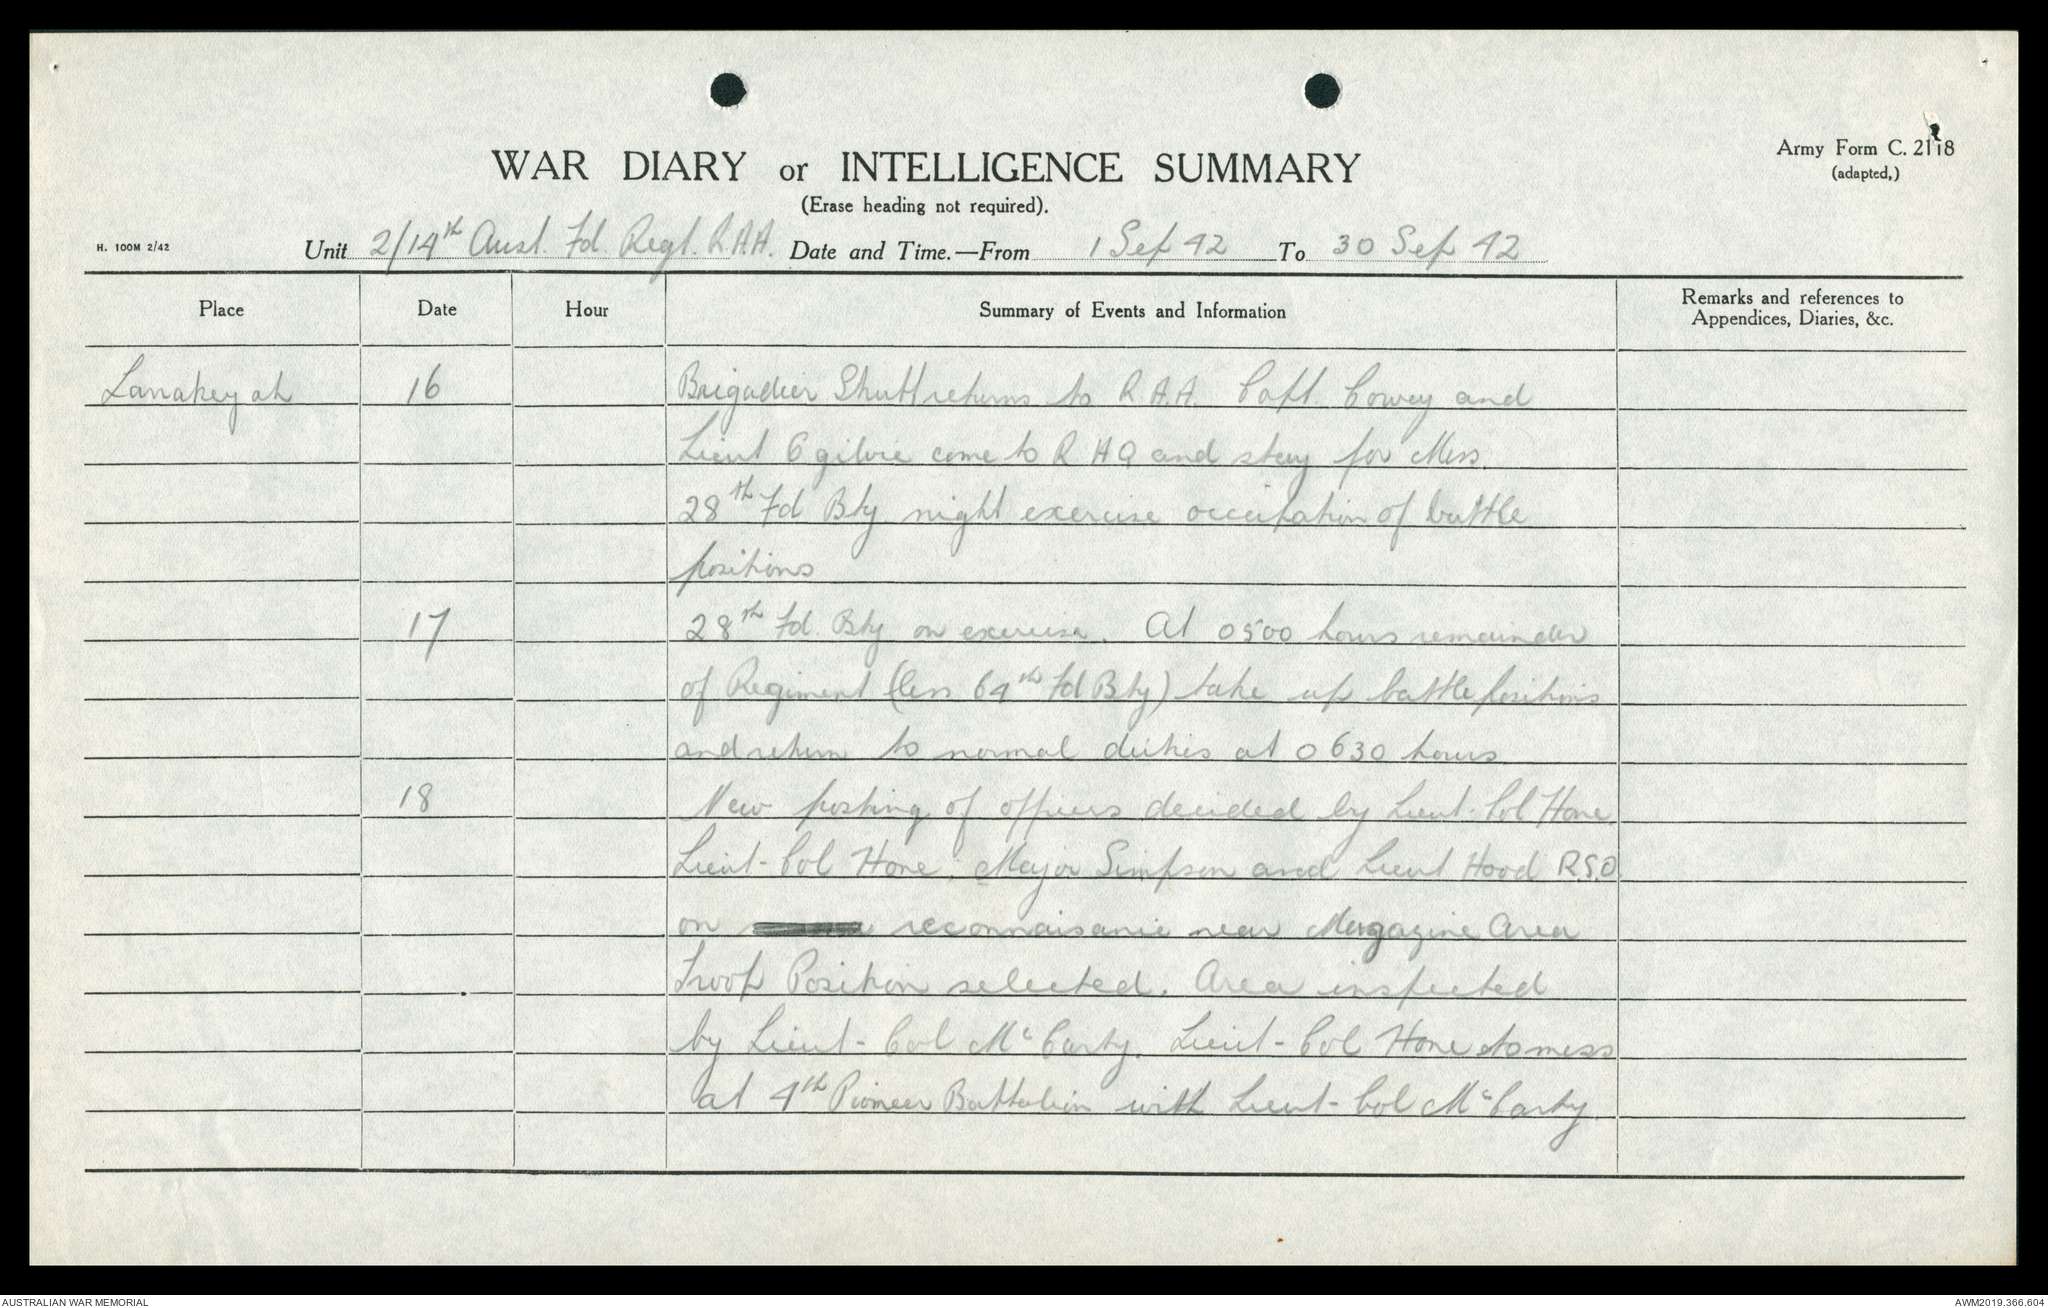 Army Form C. 2118
(adapted,)
WAR DIARY or INTELLIGENCE SUMMARY
(Erase heading not required).
H. 100M 2/42
Unit 2/14th Aust. Fd. Regt. R.A.A. Date and Time.—From 1 Sep 42 To 30 Sep 42
Place Date Hour Summary of Events and Information Remarks and references to Appendices, Diaries, &c.
Larrakeyah 16 Brigadier Strutt returns to R.A.A. Capt. Cowey and
Lieut Ogilvie come to R H Q and stay for Mess.
28th Fd Bty night exercise occupation of battle
positions
17 28th Fd. Bty on exercise. At 0500 hours remainder
of Regiment (less 64th Fd Bty) take up battle positions
and return to normal duties at 0630 hours
18 New posting of officers decided by Lieut-Col Hone
Lieut-Col Hone. Major Simpson and Lieut Hood R.S.O.
on reconnaisanie near Magazine Area
Troop Position selected. Area inspected
by Lieut-Col McCarty. Lieut-Col Hone to mess
at 4th Pioneer Battalion with Lieut-Col McCarty.
AUSTRALIAN WAR MEMORIAL
AWM2019.366.604